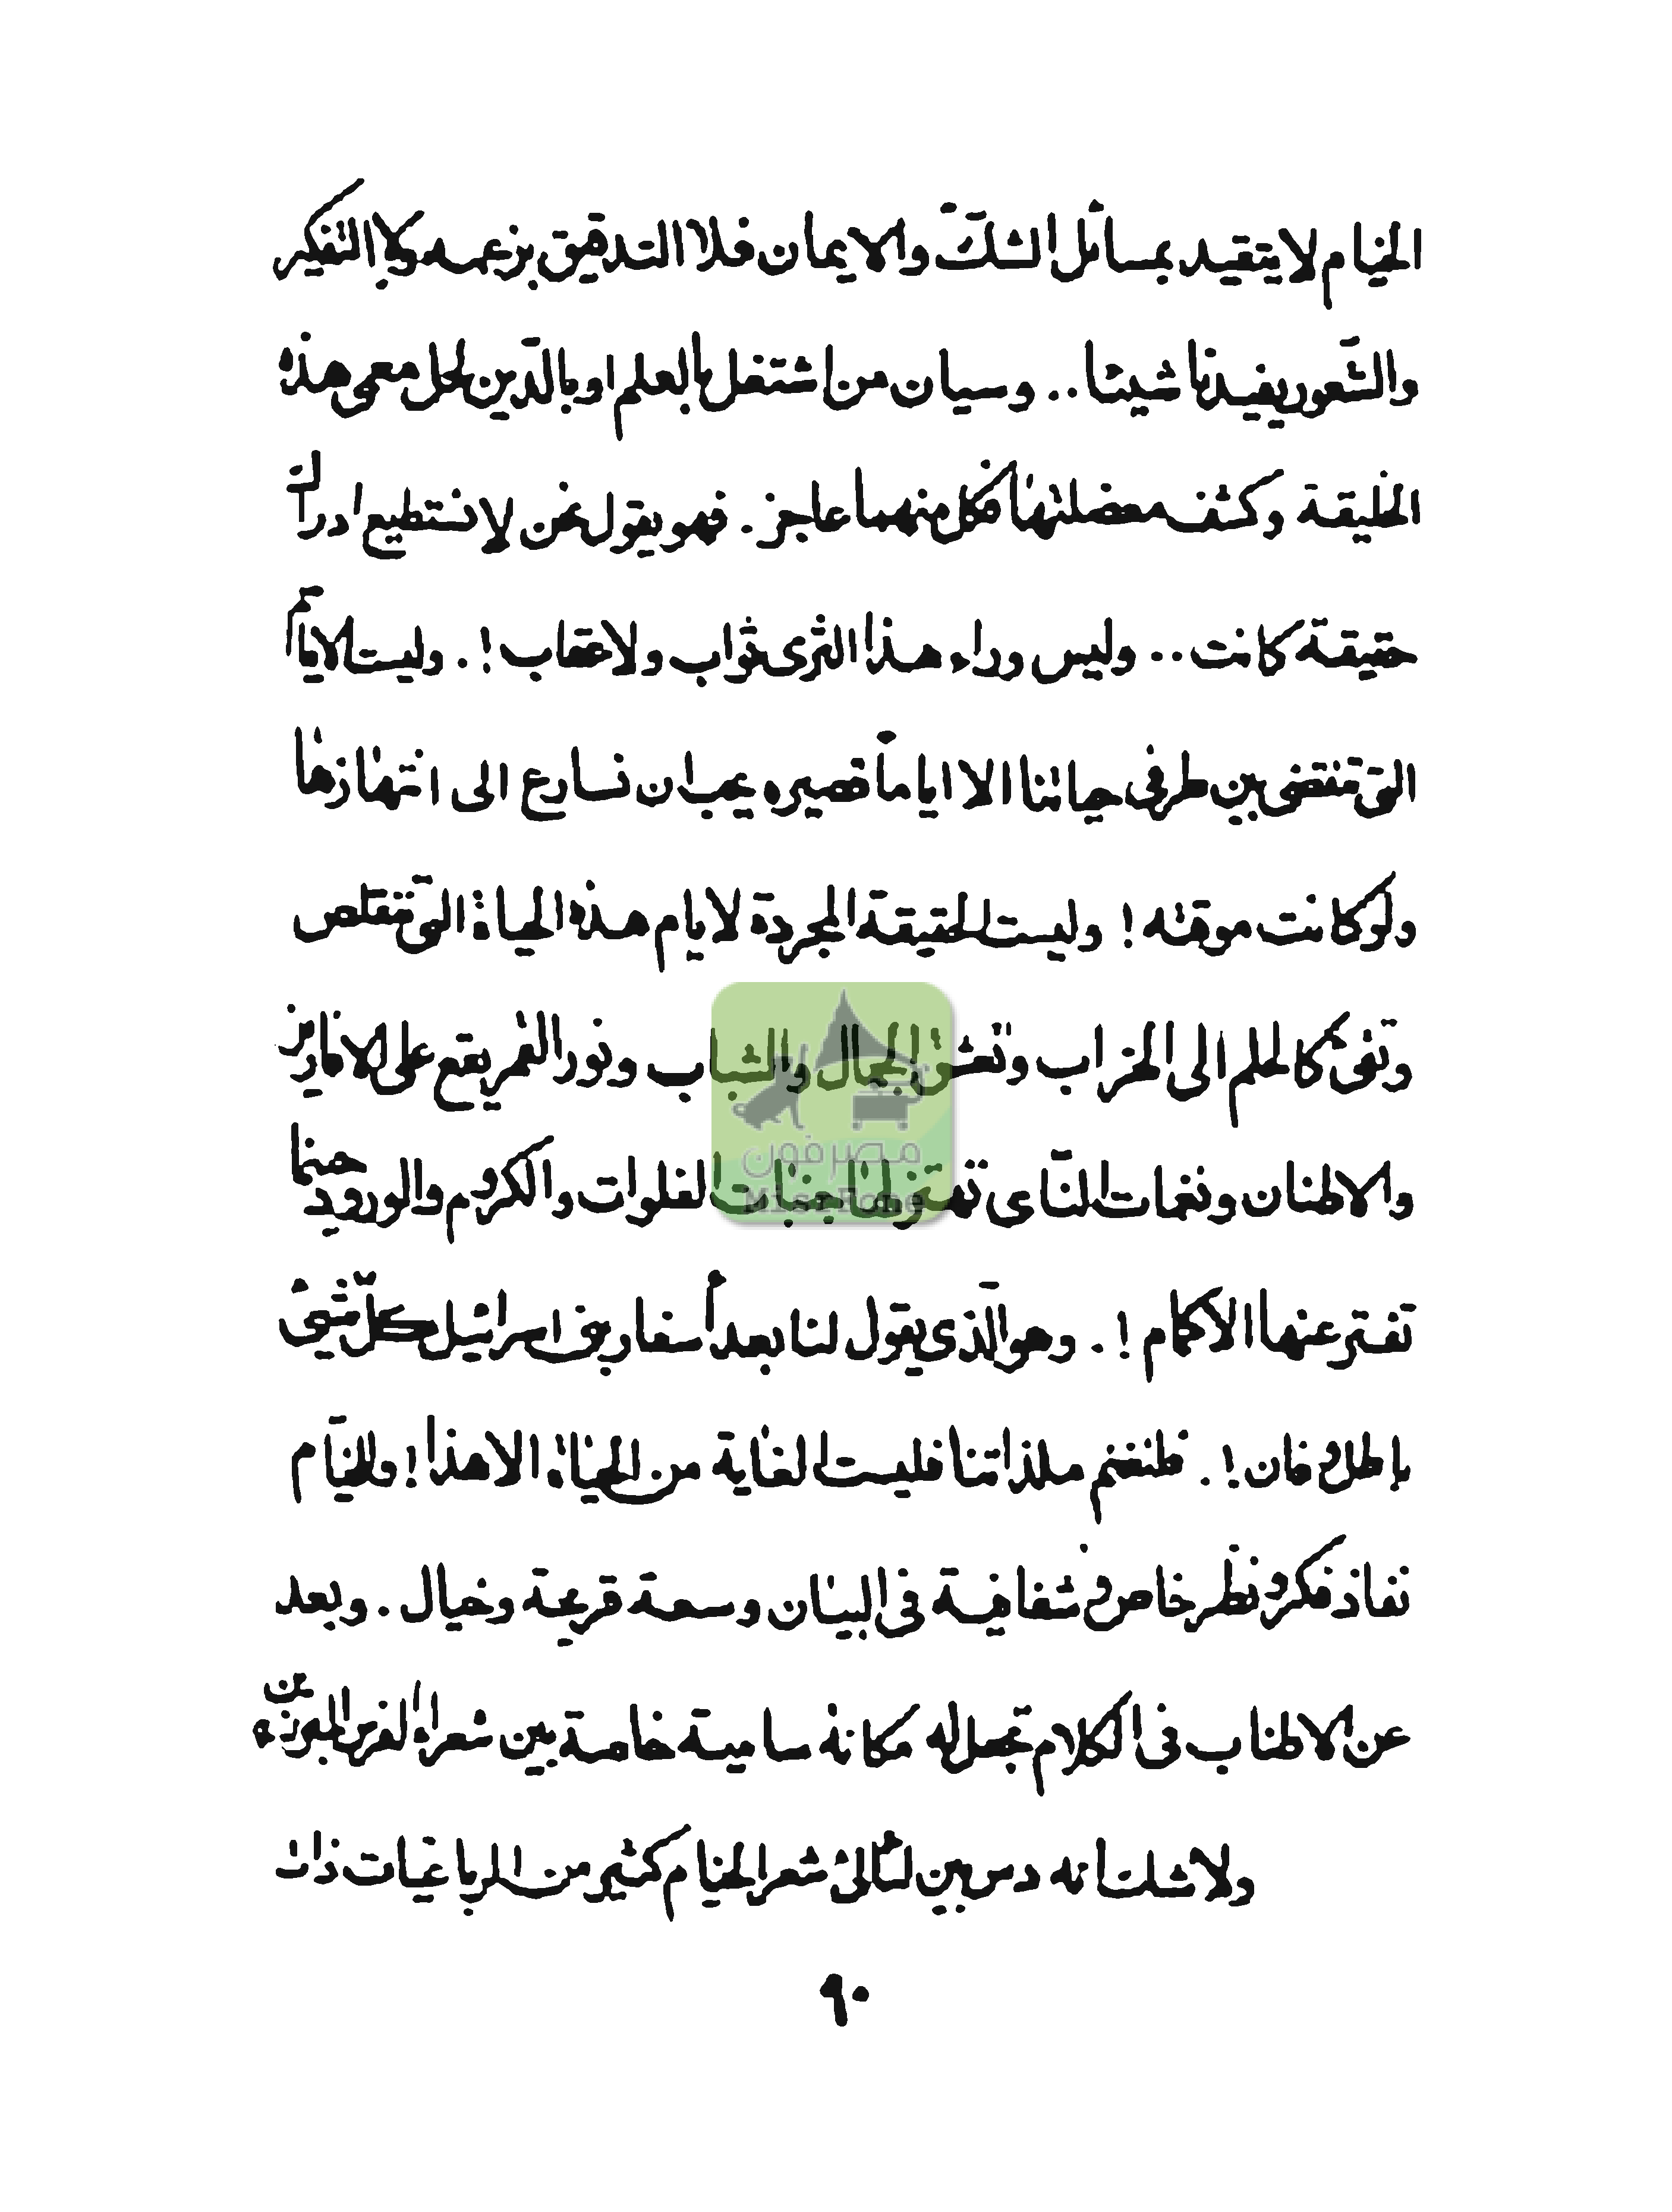 الخيام لا يتقيد بمسائل الشك والايمان فلا التدقيق بزعمه ولا التفكير
والشعور يفيدنا شيئا .. وسيان من اشتغل بالعلم او بالدين لحل معمى هذه
الخليقة وكشف معضلتها فكل منهما عاجز . فهو يقول نحن لا نستطيع ادراك
حقيقة كانت .. وليس وراء هذا الثرى ثواب ولا عقاب ! . وليست الايام
التى تنقضى بين طرفى حياتنا الا اياماً قصيره يجب ان نسارع الى انتهازها
ولو كانت موقته ! وليست الحقيقة المجردة لايام هذه الحياة التى تتقلص
وتفنى كالحلم الى الخراب وتعشق الجمال والشباب ونور القمر يقع على الافاريز
والاطنان ونغمات الناى تغفو لها جنبات الفلوات والكروم والورود حينما
تفتر عنها الاكمام ! . وهو الذى يقول لنا بعد أسفار بنى اسرائيل كل شىء
باطل وفان ! . فلنغنم ملذاتنا فليست الغاية من الحياة الا هذا ! وللخيام
نفاذ فكر ونظر خاص وشفافية فى البيان وسعة قريحة وخيال . وبعد
عن الاطناب فى الكلام تجعل له مكانة سامية خاصة بين شعراء الفرس المبرزين
ولا شك أنه دس بين لئالئ شعر الخيام كثير من الرباعيات ذات
٩٠
مصرفون
MisrFone